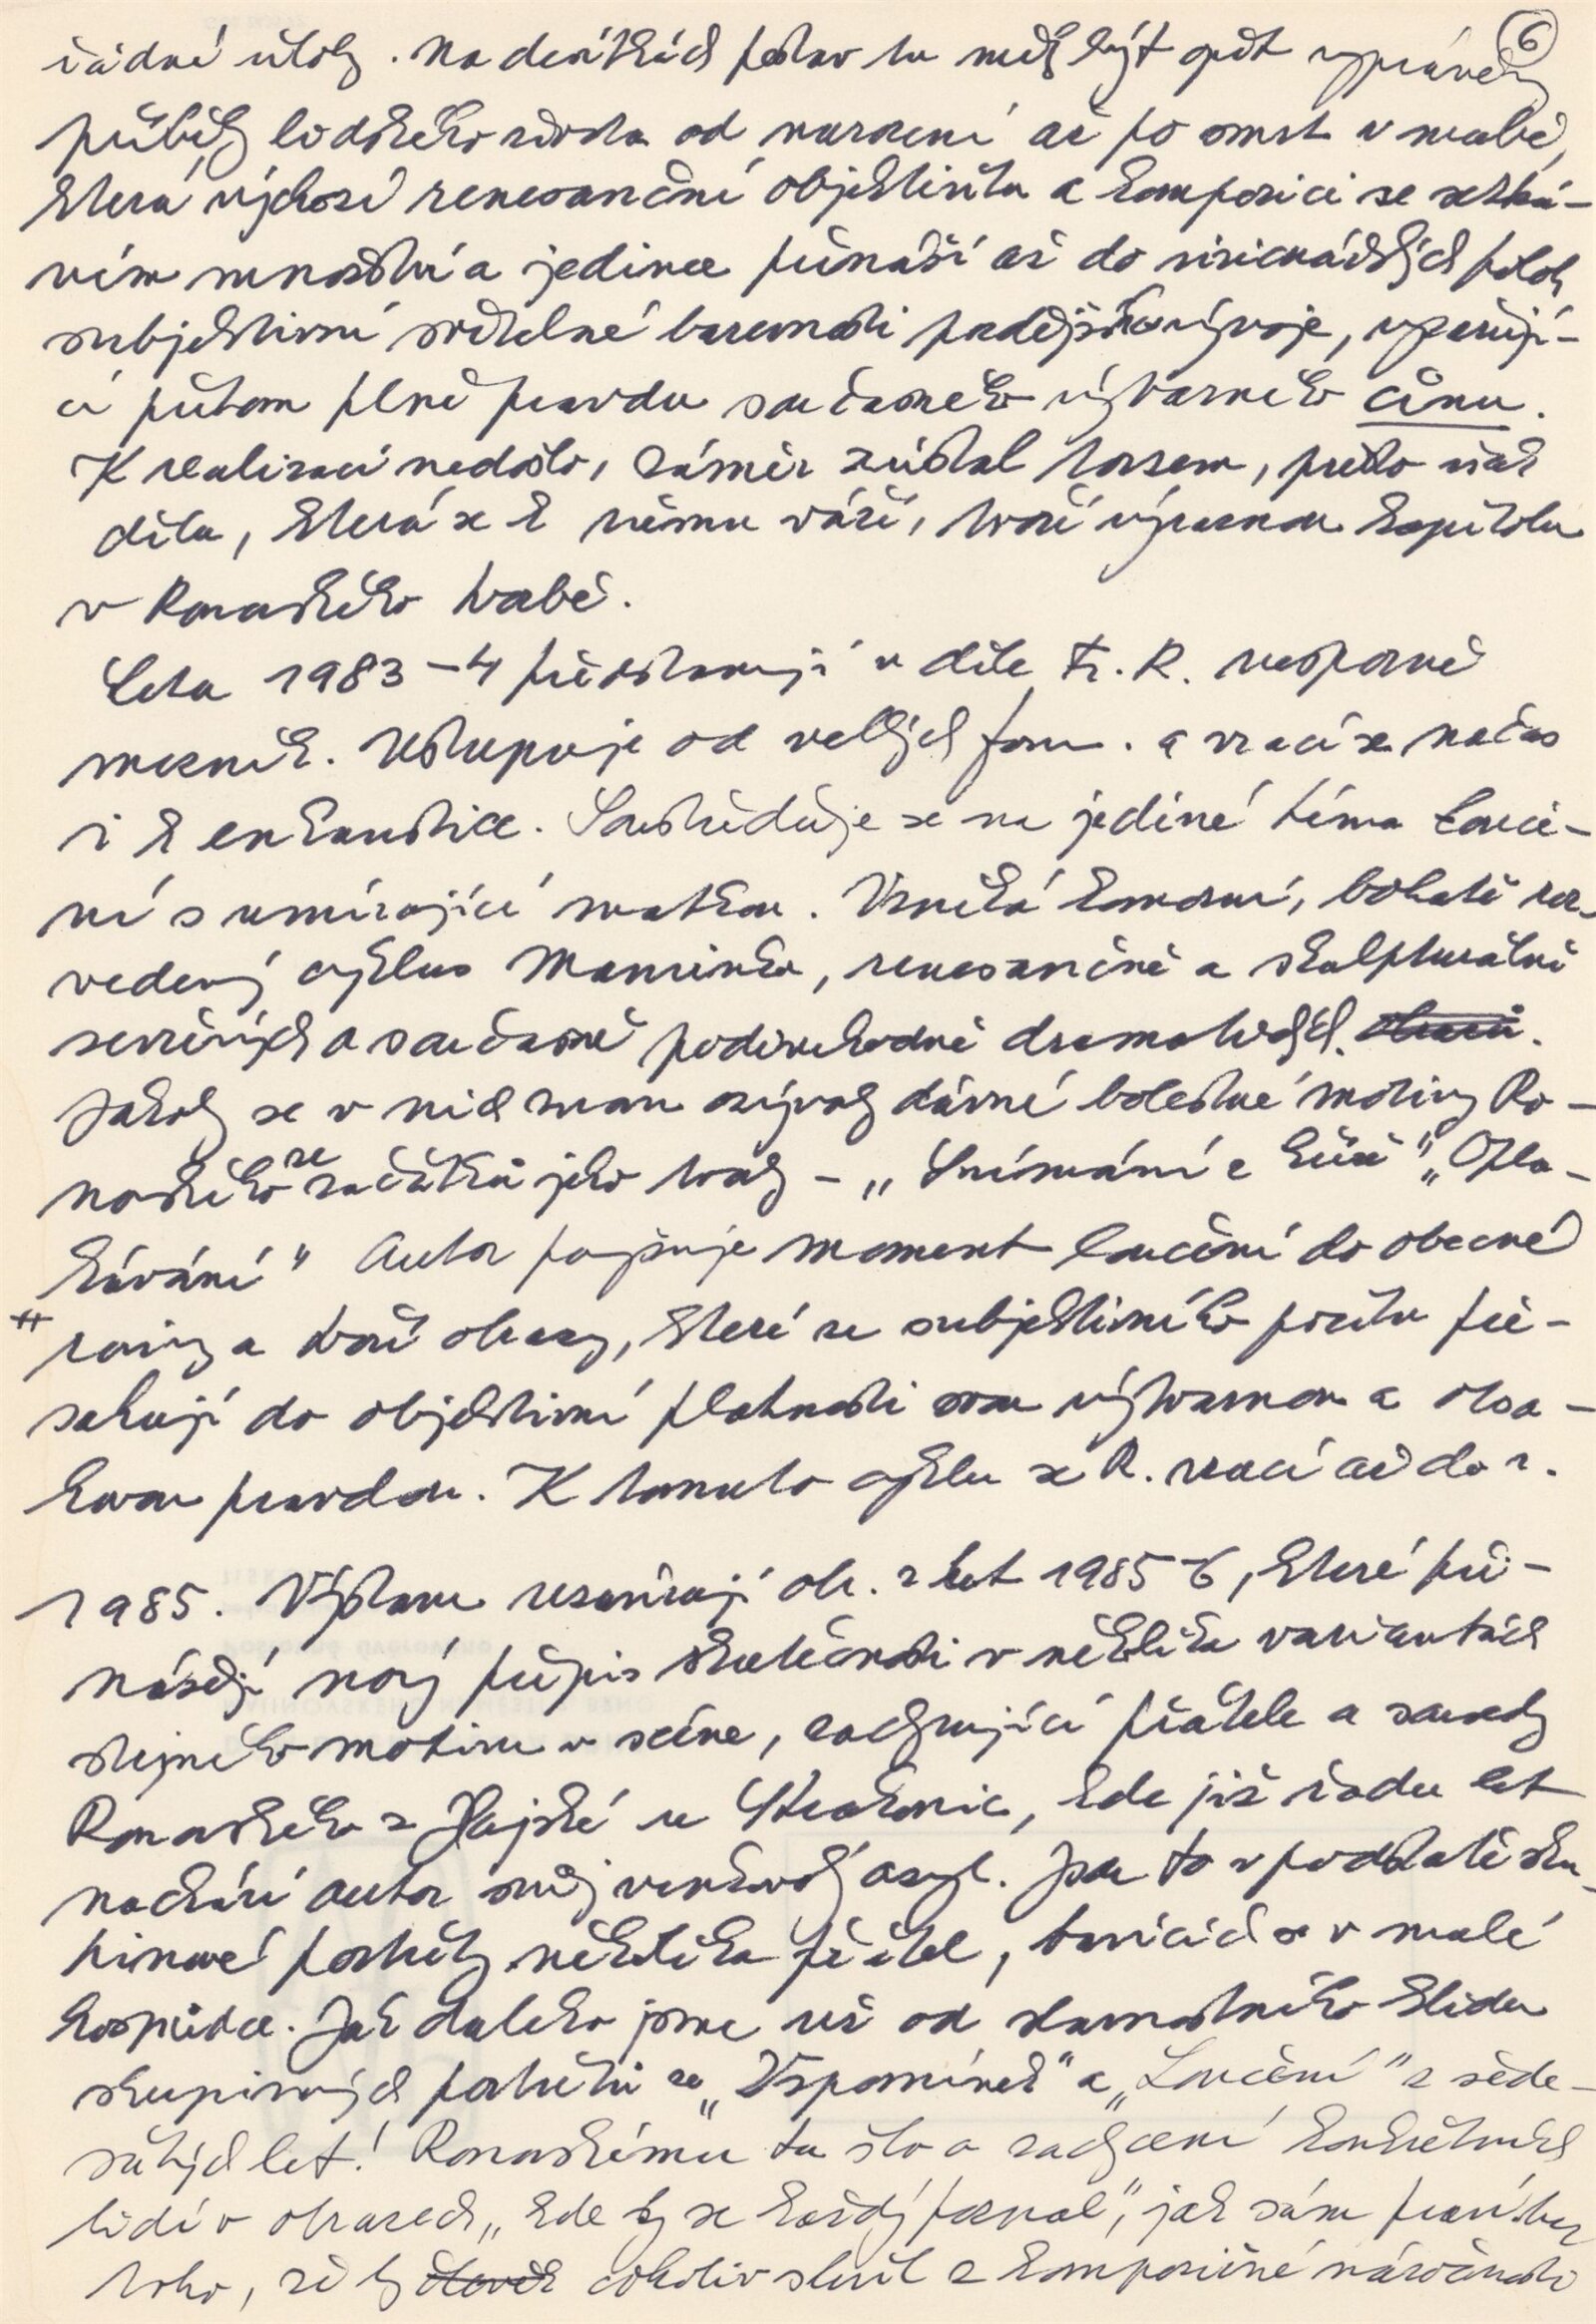 6
řádné úlohy. Na desítkách postav tu měl být opět vyprávěn
příběh lidského rodu od narození až po smrt v malbě,
která výchozí renesanční objektivitu a kompozici se setká-
ním množství a jedince přináší až do vizionářských poloh
subjektivní světelné barevnosti pozdějšího vývoje, vyznívají-
cí přitom plně pravdu současného výtvarného činu.
K realizaci nedošlo, záměr zůstal torzem, přesto však
díla, která se k němu váží, tvoří výraznou kapitolu
v Ronovského tvorbě.
Léta 1983–4 představují v díle Fr. R. nesporně
mezník. Ustupuje od velkých forem. a vrací se načas
i k enkaustice. Soustřeďuje se na jediné téma Louče-
ní s umírající matkou. Vzniká komorní, bohatě roz-
vedený cyklus Maminka, renesančně a skulpturálně
sevřených a současně podivuhodně dramatických.
Jakoby se v nich znovu ozývaly dávné bolestné motivy Ro-
novského ze začátků jeho tvorby – „Snímání z kříže“ „Opla-
kávání“ Autor povyšuje moment loučení do obecné
roviny a tvoří obrazy, které ze subjektivního pocitu pře-
sahují do objektivní platnosti svou výtvarnou a obsa-
hovou pravdou. K tomuto cyklu se R. vrací až do r.
1985. Výstavu uzavírají obr. z let 1985–6, které při-
nášejí nový přepis skutečnosti v několika variantách
stejného motivu v scéne, zachycující přátele a sousedy
Ronovského z Hajské u Strakonic, kde již řadu let
nachází autor svůj venkovský asyl. Jsou to v podstatě sku-
pinové portréty několika přátel, bavících se v malé
hospůdce. Jak daleko jsme už od slavnostního klidu
skupinových portrétů ze „Vzpomínek“ a „Loučení“ z šede-
sátých let! Ronovskému tu šlo o zachycení konkrétních
lidí v obrazech „kde by se každý poznal“, jak sám praví, bez
toho, že by cokoliv slevil z kompoziční náročnosti